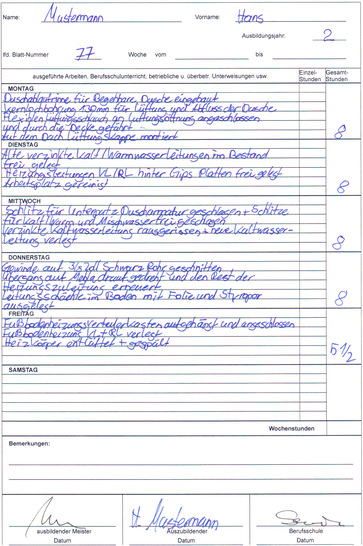 Name: Mustermann Vorname: Hans
Ausbildungsjahr: 2
lfd. Blatt-Nummer 77 Woche vom bis
ausgeführte Arbeiten, Berufsschulunterricht, betriebliche u. überbetr. Unterweisungen usw. Einzel-Stunden Gesamt-Stunden
MONTAG
Duschabtrenne für Begehbare Dusche eingebaut
Kernlochbohrung 130mm für Lüftung und Abfluss der Dusche
Flexiblen Lüftungsschlauch an Lüftungsöffnung angeschlossen
und durch die Decke gefahrt
Auf dem Dach Lüftungskappe montiert 8
DIENSTAG
Alte verzinkte Kalt/Warmwasserleitungen im Bestand
frei gelegt
Heizungsleitungen VL/RL hinter Gips Platten frei gelegt
Arbeitsplatz gereinigt 8
MITTWOCH
Schlitz für Unterputz Duscharmatur geschlagen + Schlitze
für Kalt/Warm und Mischwasser frei geschlagen
Verzinkte Kaltwasserleitung rausgerissen + neue Kaltwasser-
leitung verlegt 8
DONNERSTAG
Gewinde auf 3/8 Zoll Schwarz Rohr geschnitten
Übergang auf Mepla drauf gedreht und den Rest der
Heizungszuleitung erneuert
Leitungsschächte im Boden mit Folie und Styropor
ausgelegt 8
FREITAG
Fußbodenheizungsverteilerkasten aufgehängt und angeschlossen
Fußbodenheizung VL + RL verlegt
Heizkörper entlüftet + gespült 5 1/2
SAMSTAG
Wochenstunden
Bemerkungen:
H. Mustermann
ausbildender Meister Auszubildender Berufsschule
Datum Datum Datum